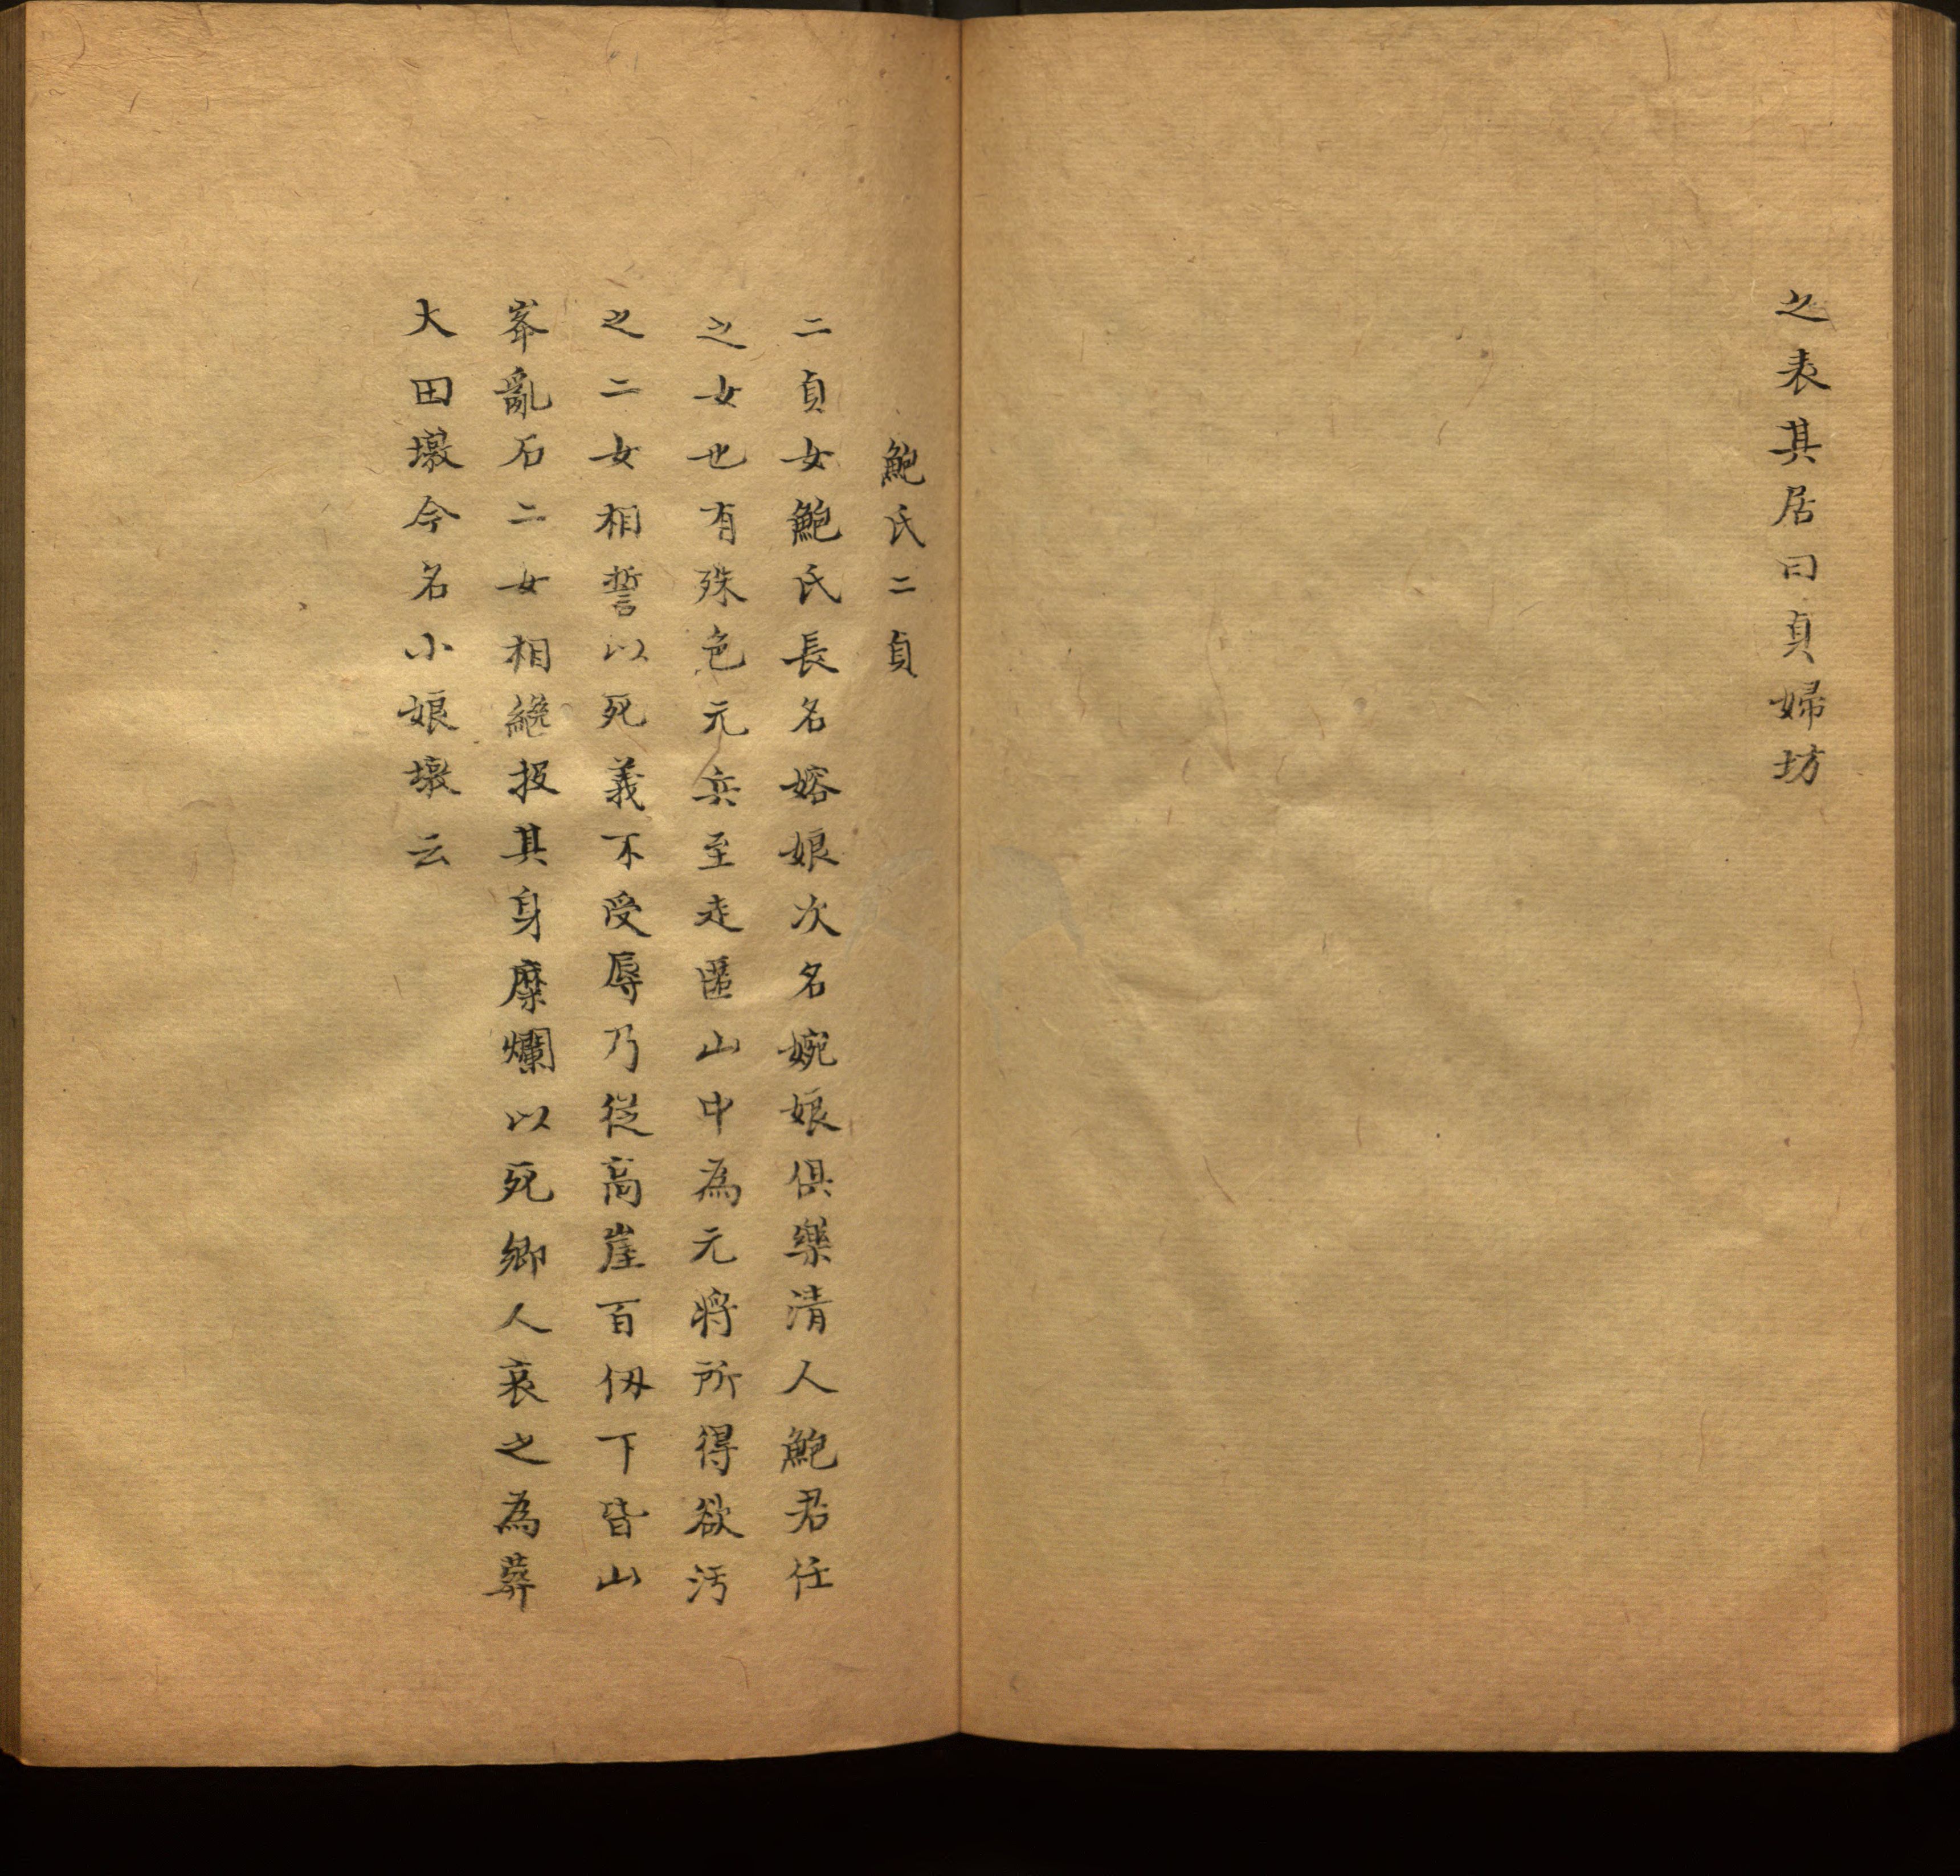 之表其居曰貞婦坊
鮑氏二貞
二貞女鮑氏長名嫆娘次名婉娘俱樂清人鮑君任
之女也有殊色元兵至走匿山中為元將所得欲污
之二女相誓以死義不受辱乃從高崖百仭下皆山
峯亂石二女相繼投其身糜爛以死鄉人哀之為葬
大田墩今名小娘墩云